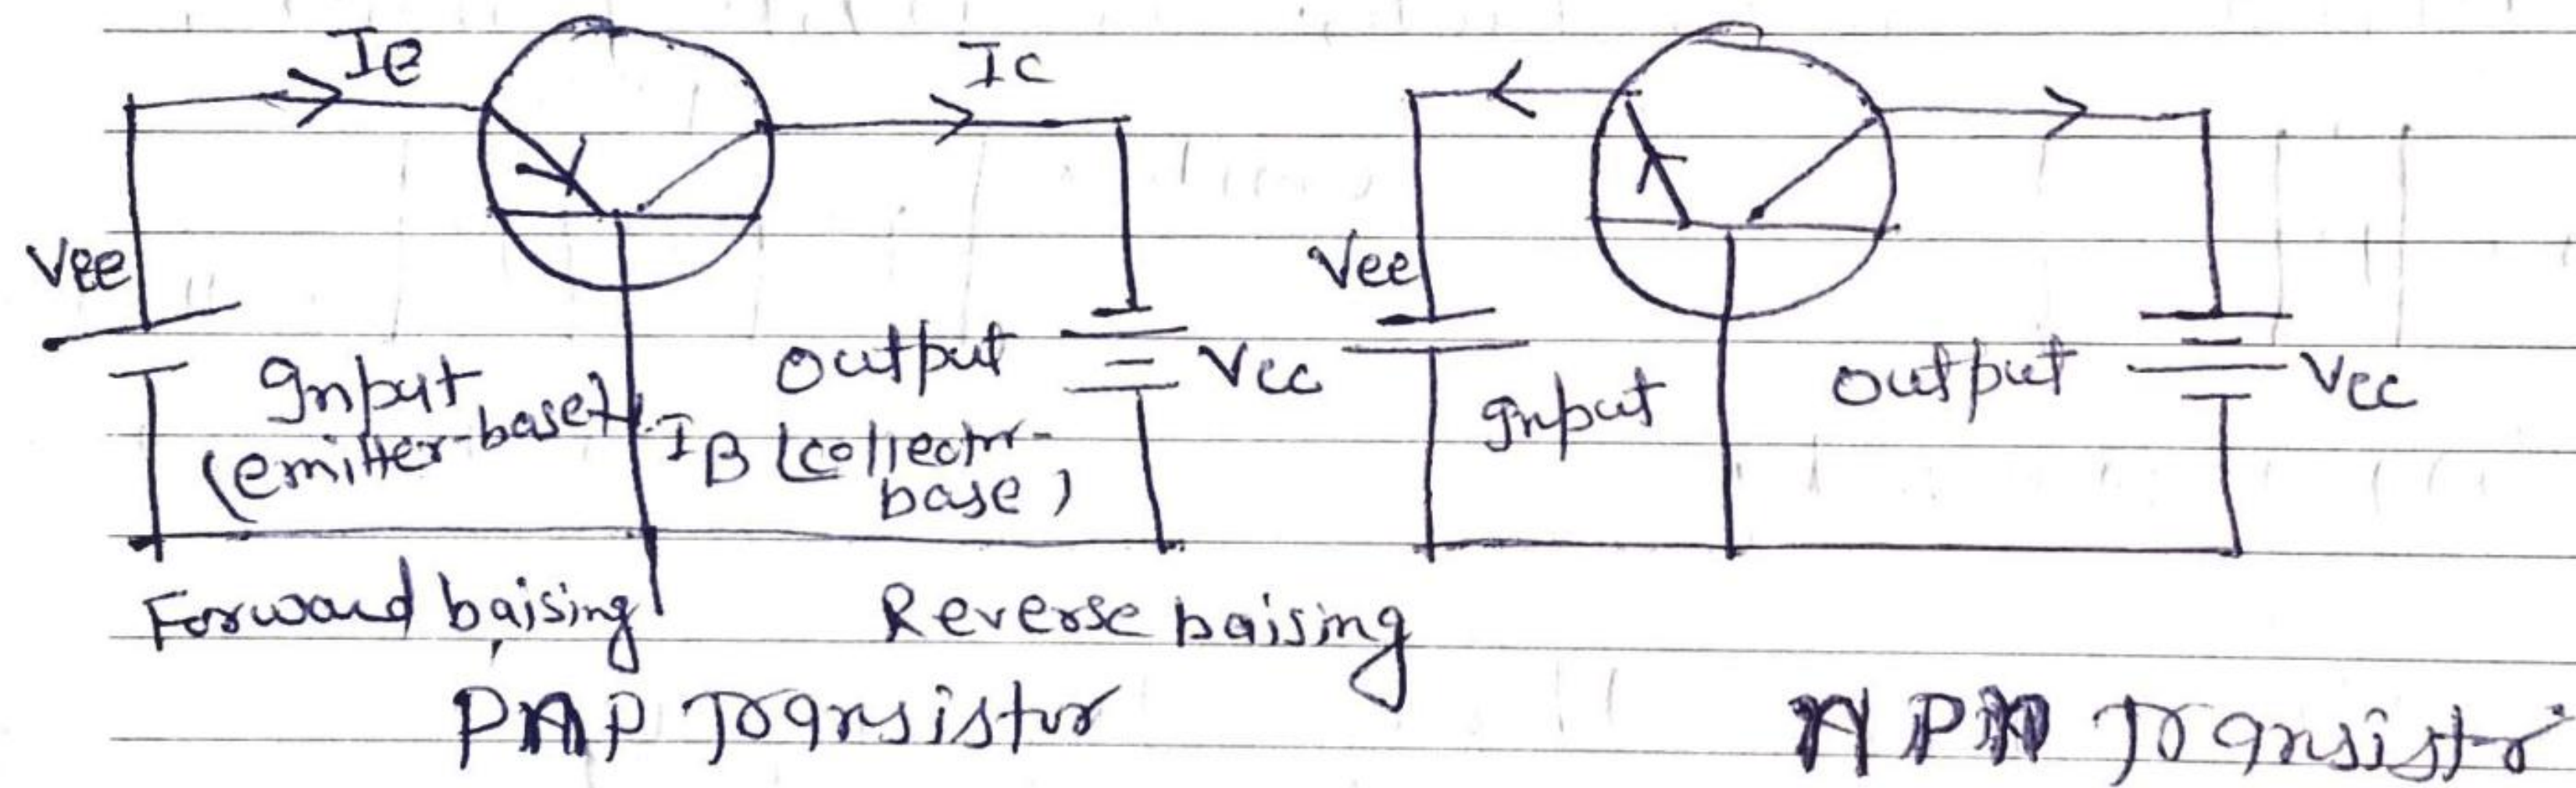 IE
IC
VEE
Input
(emitter-base)
IB
Output
(collector-
base)
VCC
Forward baising
Reverse baising
PNP Transistor
Vee
Input
Output
VCC
NPN Transistor